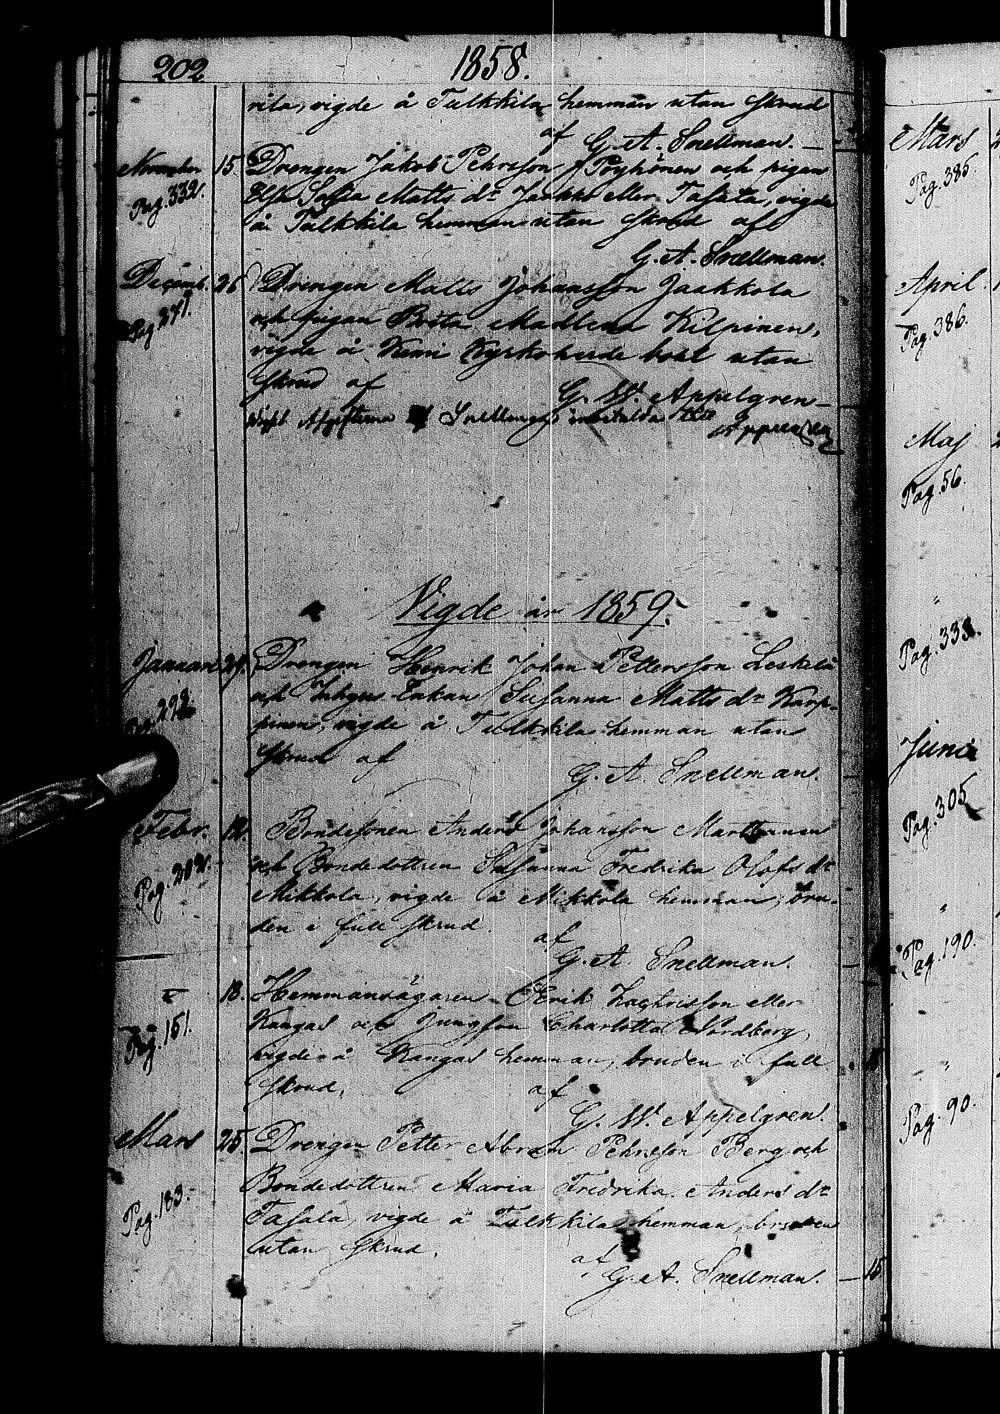 202 1858.
rila, vigde å Tulkkila hemman utan skrud
af G. A. Snellman.
November 15 Drengen Jakob Pehrsson Pöyhönen och pigan
Pag. 332. Elsa Sofia Matts dr eller Tafala, vigde
å Tulkkila hemman utan skrud af
G. A. Snellman.
Decemb. 26 Drengen Matts Johansson Jaakkola
Pag 271. och pigan Brita Madlena Kilpinen,
vigde å Kemi Kyrkoherde boel utan
skrud af G. W. Appelgren
Snellman
Vigde år 1859.
Januari 29. Drengen Henrik Johan Pettersson Leskelä
Pag. 272. och Enkan Susanna Matts dr Karp-
pinen, vigde å Tulkkila hemman utan
skrud af
G. A. Snellman.
Febr. 12. Bondesonen Anders Johansson Marttunen
och Bondedottren Susanna Fredrika Olofs dr
Pag. 202. Mikkola, vigde å Mikkola hemman, bru-
den i full skrud.
af
G. A. Snellman.
18. Hemmansägaren Erik Zachrisson eller
Pag. 151. Kangas och Jungfrun Charlotta Nordberg,
vigde å Kangas hemman, bruden i full
skrud, af
G. W. Appelgren.
Mars 25. Drengen Petter Abram Pehrsson Berg och
Bondedottren Maria Fredrika Anders dr
Pag. 183. Tafala, vigde å Tulkkila hemman, bruden
utan skrud,
af
G. A. Snellman. 15
Mars
Pag. 386
April
Pag. 386.
Maj
Pag. 56.
"
Pag. 338.
Junii
Pag. 305
"
Pag. 190.
"
Pag. 90.